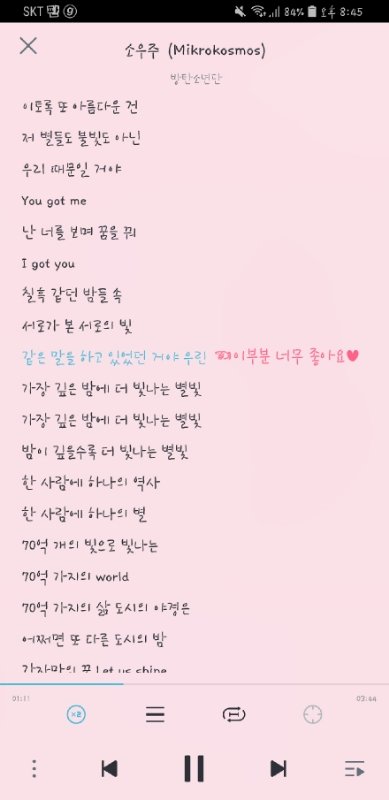 SKT 84% 오후 8:45
소우주 (Mikrokosmos)
방탄소년단
이토록 또 아름다운 건
저 별들도 불빛도 아닌
우리 때문일 거야
You got me
난 너를 보며 꿈을 꿔
I got you
칠흑 같던 밤들 속
서로가 본 서로의 빛
같은 말을 하고 있었던 거야 우린 이부분 너무 좋아요♥
가장 깊은 밤에 더 빛나는 별빛
가장 깊은 밤에 더 빛나는 별빛
밤이 깊을수록 더 빛나는 별빛
한 사람에 하나의 역사
한 사람에 하나의 별
70억 개의 빛으로 빛나는
70억 가지의 world
70억 가지의 삶 도시의 야경은
어쩌면 또 다른 도시의 밤
각자만의 꿈 Let us shine
01:11 03:44
×2